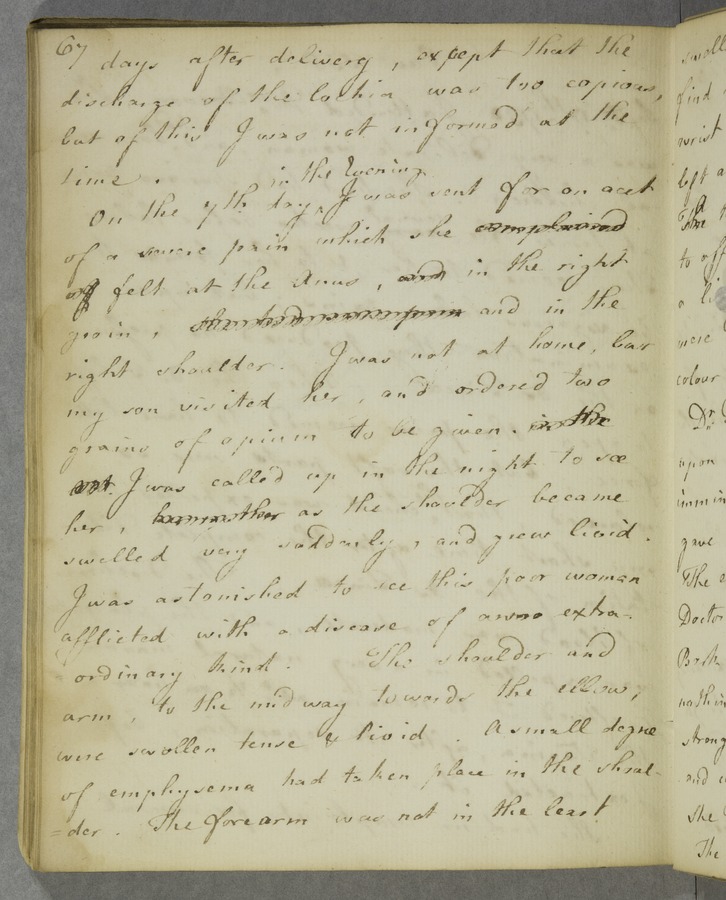 67 days after delivery, except that the
discharge of the lochia was too copious,
but of this I was not informed at the
time.
in the Evening
On the 7th day, I was sent for on acct
of a severe pain which she complained
of felt at the Anus, and in the right
groin, and in the
right shoulder. I was not at home, but
my son visited her, and ordered two
grains of opium to be given. in the
I was called up in the night to see
her, as the shoulder became
swelled very suddenly, and grew livid.
I was astonished to see this poor woman
afflicted with a disease of extra-
ordinary kind. The shoulder and
arm, to the midway towards the elbow,
were swollen tense & livid. A small degree
of emphysema had taken place in the shoul-
=der. The forearm was not in the least
find
wrist
left a
The
to off
a li
were
colour
Dr
upon
immin
gave
The
Doctor
Bark
nothin
strong
and
she
The